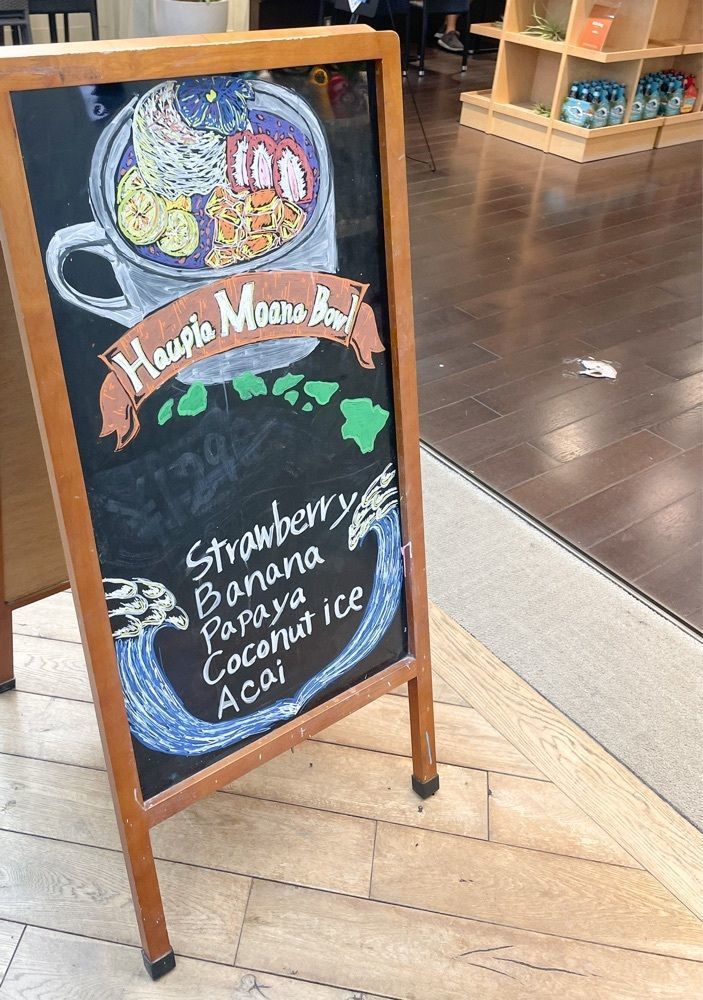 Haupia Moana Bowl
Strawberry
Banana
Papaya
Coconut ice
Acai